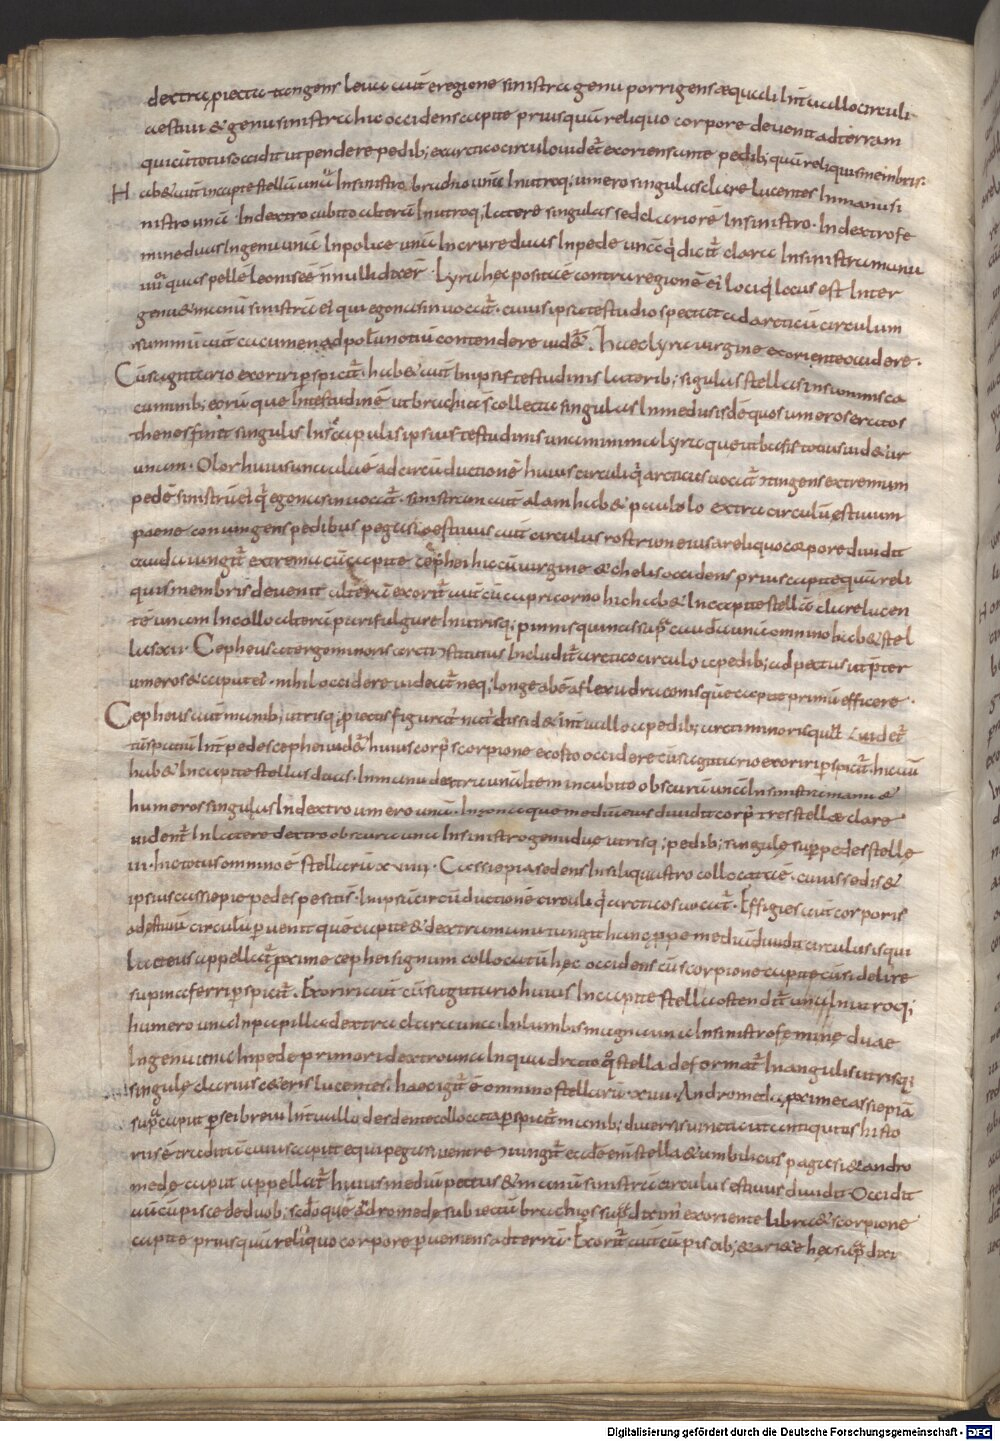 dextra piecta tangens leua aut e regione sinistra genu porrigens aequali Interuallo circuli
aestiui & genu sinistra hic occidens capite prius quā reliquo corpore deuenit ad terram
qui cū totus occidit ut pendere pedib; ex arctico circulo uidet̄ exoriens ante pedib; quā reliquis membris.
Hab& aut̄ in capite stellā unā In sinistro brachio unā In utroq; umero singulas clare lucentes In manu si
nistra unā. In dextro cubito alterā In utroq; latere singulas sed clariorē In sinistro. In dextro fe
mine duas In genu unā In poplice unā In crure duas In pede unā quę dicit̄ clara In sinistra manu
IIII quas pellē leonis eē nonnulli dixer̄. Lyra hęc posita ē contra regionē ei loci qd locus est Inter
genu & manū sinistrā ei qui egonasin uocat̄. cuius ipsa testudo spectat ad arcticū circulum
summū aut cacumen ad polū notiū contendere uidet̄. Haec lyra uirgine exoriente occidere.
Cū sagittario exoriri perspicit̄. hab& aut̄ In ipsis testudinis laterib; sigulas stellas in summis ca
cuminib; eorū que In testudinē ut brachia s̄ collecta singulas In mediis isdē quos umeros eratos
thenes finxit singulis In scapulis ipsius testudinis una In ima lyra que ut basis totius uid&ur
unam. Olor huius una ala ē ad circūductionē huius circuli q̄ arcticus uocat̄ tingens extremum
pedē sinistrū ei q̄ egonasin uocat̄. sinistram aut̄ alam hab& paulolo extra circulū estiuum
paene coniungens pedibus pegasi aestiuus aut̄ circulus rostrum eius a reliquo corpore diuidit
cauda iungit̄ extrema cū capite cephei hic cū uirgine & chelis occidens prius capite quā reli
quis membris deuenit ad terrā exorit̄ aut̄ cū capricorno hic hab& In capite stellā clare lucen
tē unam In collo alterā pari fulgure In utrisq; pinnis quinas supra caudā unā omnino hab& stel
las xII. Cepheus a tergo minoris arcti c̄stitutus Includit̄ arctico circulo a pedib; ad pectus ut p̄ter
umeros & caput ei. nihil occidere uideat̄ neq; longe abē a flexu draconis que caput primū efficere.
Cepheus aut̄ manib; utrisq; piectis figurat̄ nec̄ dissid& int̄uallo a pedib; arcti minoris quā uidet̄
tū spatiū Int̄ pedes cephei uidet̄ huius corp̄ scorpione exorto occidere cū sagittario exoriri perspicit̄. hic aut̄
hab& In capite stellas duas. In manu dextra unā Item in cubito obscurā unā In sinistra manu &
humeros singulas In dextro umero unā. In zona que mediū eius diuidit corp̄ tres stellae clare
uident̄ In latere dextro obscura una In sinistro genu due utrisq; pedib; singule sup̄ pedes stelle
III. hic totus omnino ē stellarū xvIIII. Cassiepia sedens In siliquastro collocata ē. cuius sedis &
ipsius cassiepie pedes positi s̄. In ipsā circūductionē circuli q̄ arcticos uocat̄. Effigies aut̄ corporis
ad estiuū circulū peruenit quē capite & dextra manu iungit hanc ppe mediā diuidit circulus is qui
lacteus appellat̄ pxime cephei signum collocatū hęc occidens cū scorpione capite cū sideli re
supina ferri perspicit̄. Exoriri aut̄ cū sagittario huius In capite stella ostendit̄ una In utroq;
humero una In papilla dextra clara una. In lumbis magna una In sinistro femine duae
In genu una In pede priori dextro una In quadrato quo stella deformat̄ In angulis utrisq;
singulę clarius cęteris lucentes. haec igit̄ ē omnino stellarū xIII. Andromeda, pxime cassiepiā
supra caput persei breui Int̄uallo desidente collocata perspicit̄ manib; diuersis uincta ut antiquitus histo
riis ē traditū cuius caput equi pegasi uentre iungit̄ eadē eni stella & umbilicus pagasi & andro
mede caput appellat̄ huius mediū pectus & manū sinistrā circulus estiuus diuidit Occidit
aut̄ cū pisce de duob; scdo quē andromede subiectū brachio s̄ supra diximꝰ exoriente libra & scorpione
capite prius quā reliquo corpore perueniens ad terrā. Exorit̄ aut̄ cū piscib; & ariete hęc supra dixi
Digitalisierung gefördert durch die Deutsche Forschungsgemeinschaft - DFG